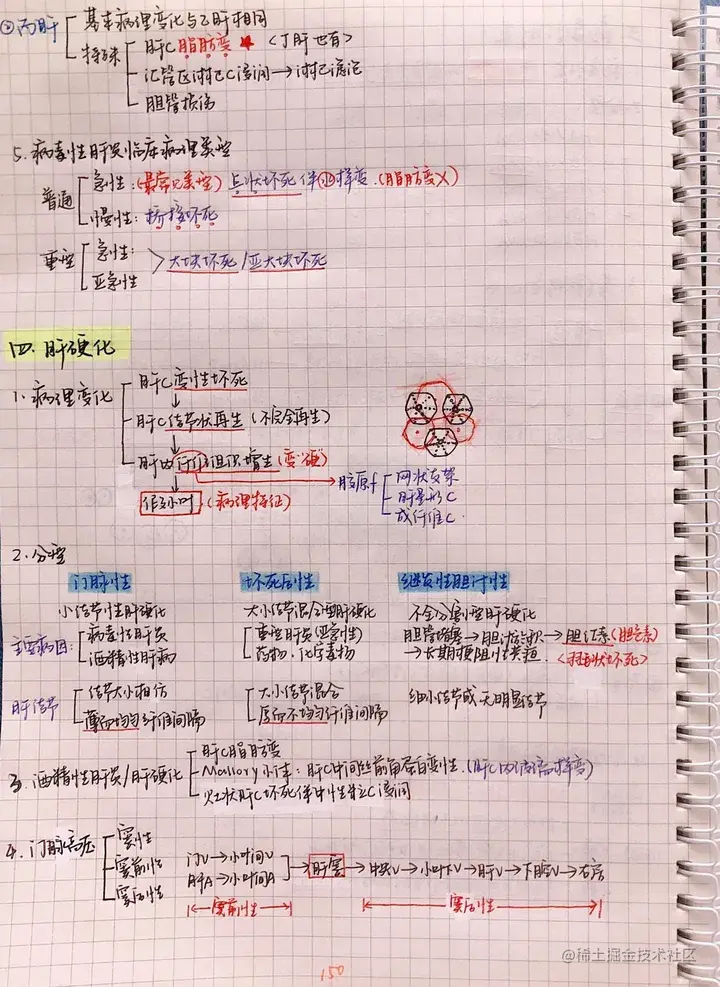 ② 丙肝
基本病理变化与乙肝相同
特殊
肝C脂肪变 ★ <丁肝也有>
汇管区淋巴C浸润→淋巴滤泡
胆管损伤
5. 病毒性肝炎临床病理类型
普通
急性:(最常见类型) 点状坏死伴水样变.(脂肪变X)
慢性: 桥接坏死
重型
急性:
亚急性
大块坏死/亚大块坏死
四. 肝硬化
1. 病理变化
肝C变性坏死
肝C结节状再生 (不完全再生)
肝内纤维组织增生 (变"硬")
假小叶 (病理特征)
胶原f
网状支架
肝星形C
成纤维C
2. 分型
门脉性 坏死后性 继发性胆汁性
小结节性肝硬化 大小结节混合型肝硬化 不全分割型肝硬化
主要病因:
病毒性肝炎
酒精性肝病
重型肝炎(亚急性)
药物、化学毒物
胆管堵塞→胆汁淤积→胆红素(胆色素)
→长期梗阻性黄疸 <羽毛状坏死>
肝结节
结节大小相仿
薄而均匀纤维间隔
大小结节混合
厚而不均匀纤维间隔
细小结节或无明显结节
3. 酒精性肝炎/肝硬化
肝C脂肪变
Mallory小体: 肝C中间丝前角蛋白变性.(肝C内玻璃样变)
灶状肝C坏死伴中性粒C浸润
4. 门脉高压
窦性
窦前性
窦后性
门V→小叶间V
肝A→小叶间A
→肝窦→中央V→小叶下V→肝V→下腔V→右房
窦前性 窦后性
150
@稀土掘金技术社区